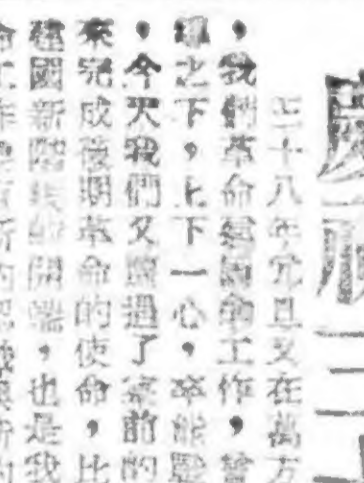 慶祝三十
三十八年元旦又在萬方
，我們革命建國的工作，曾
之下，上下一心，卒能
，今天我們又渡過了空前的
來完成後期革命的使命，比
建國新階段的開端，也是我
命工作